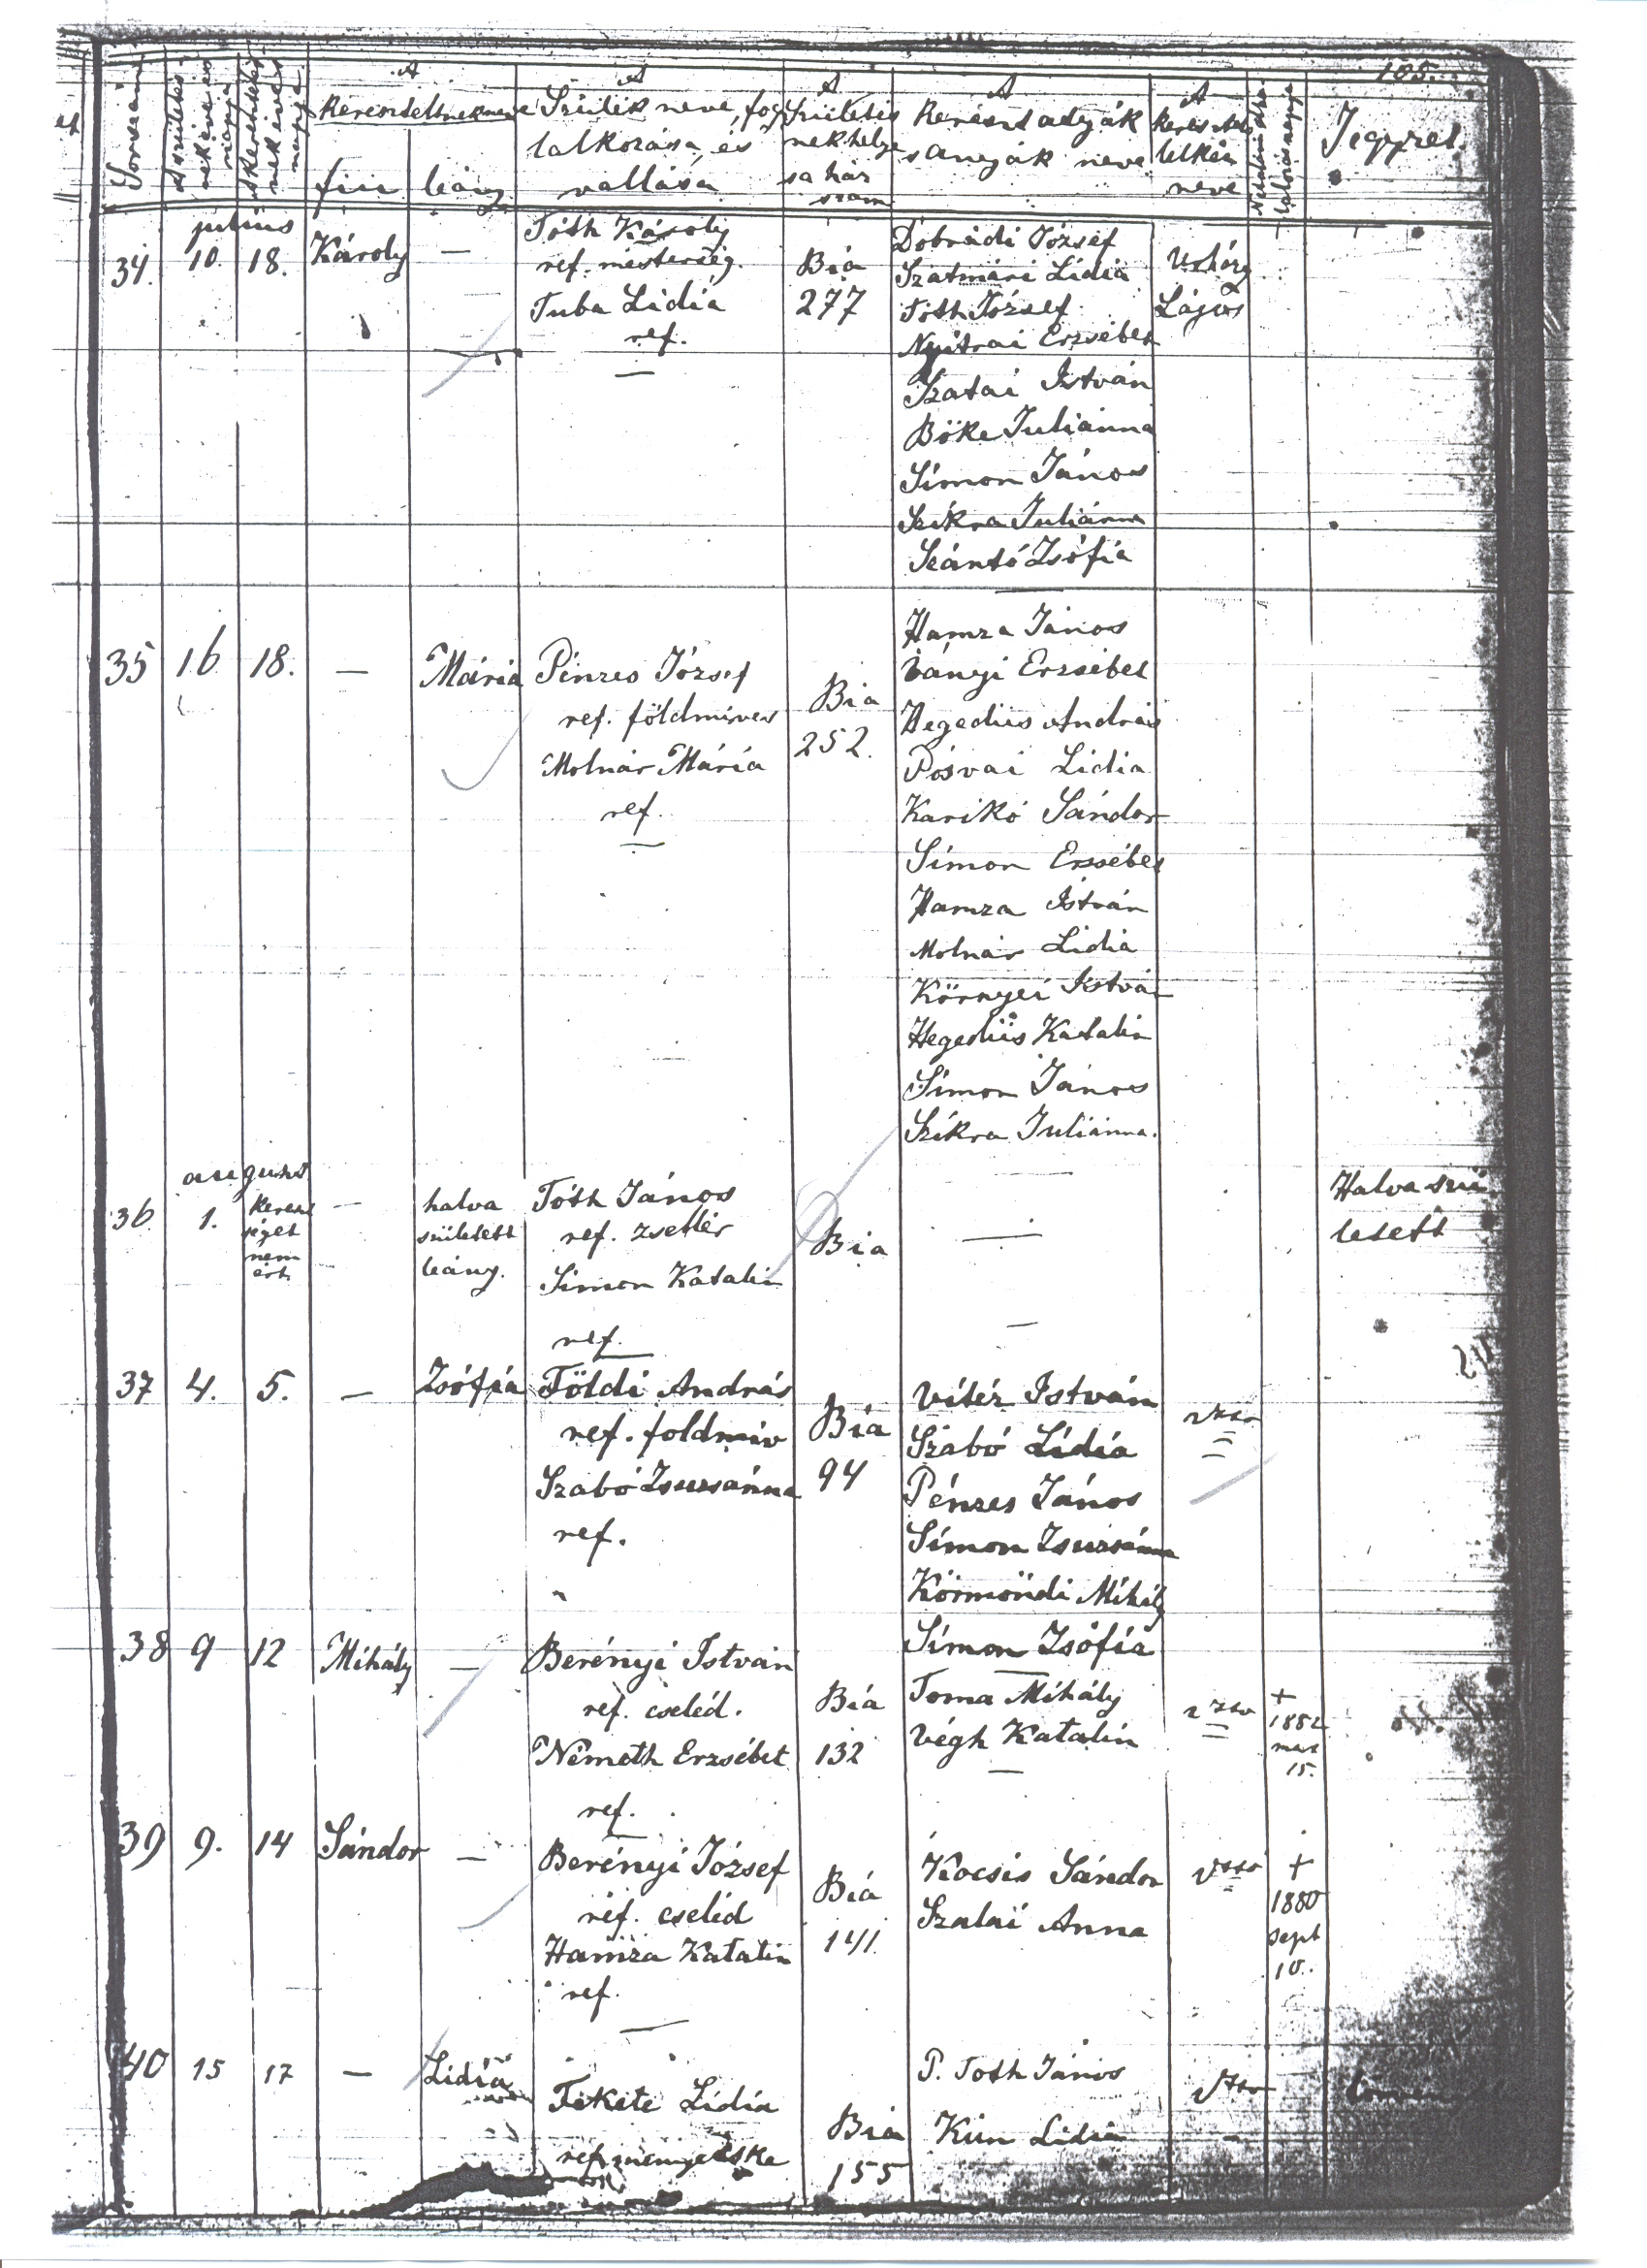 105.
Sorszám
A születés-
nek éve és
napja
A keresztelés-
nek éve és
napja
A
kereszteltnek neve
fiú
leány
A
Szülék neve, fog
lalkozása, és
vallása
A
Születés
nek helye
s a ház
szám
A
Keresztatyák
s anyák neve
A
keresztelő
lelkész
neve
Jegyzet.
julius
34. 10. 18. Károly —
Tóth Károly
ref. mesterség.
Tuba Lidia
ref.
Bia
277
Dobrádi József
Szatmári Lidia
Tóth József
Nyitrai Erzsébet
Szatai István
Bőke Juliánna
Simon János
Szikra Juliánna
Szántó Zsófia
Lajos
35 16 18. — Mária
Pénzes József
ref. földmives
Molnár Mária
ref.
Bia
252.
Hamza János
Ványi Erzsébet
Hegedüs András
Pósvai Lidia
Karikó Sándor
Simon Erzsébet
Hamza István
Molnár Lidia
Környei István
Hegedüs Katalin
Simon János
Szikra Juliánna.
august
36 1.
keresz
séget
nem
ért
—
halva
született
leány.
Tóth János
ref. zsellér
Simon Katalin
ref.
Bia
—
Halva szü
letett
37 4. 5. — Zsófia
Földi András
ref. foldmiv
Szabó Zsuzsánna
ref.
Bia
94
Vitéz István
Szabó Lidia
Pénzes János
Simon Zsuzsánna
Körmöndi Mihály
Simon Zsófia
38 9 12 Mihály —
Berényi István
ref. cseléd.
Németh Erzsébet
ref.
Bia
132
Toma Mihály
Végh Katalin
+
1882
mart
15.
39 9. 14 Sándor —
Berényi József
ref. cseléd
Hamza Katalin
ref.
Bia
141.
Kocsis Sándor
Szalai Anna
+
1880
sept
10.
40 15 17 — Lidia
Fekete Lidia
ref. menyecske
Bia
155
P. Toth János
Kun Lidia